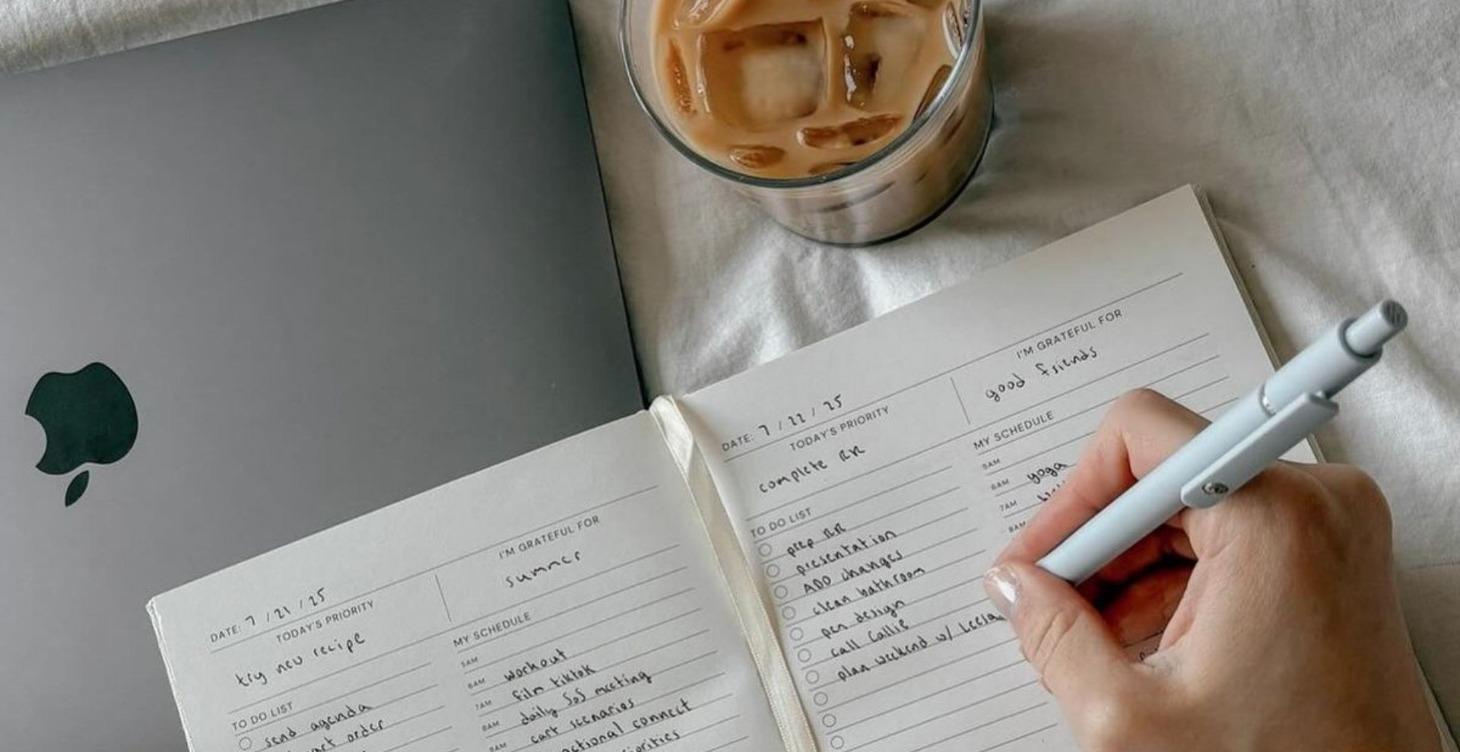 DATE: 7 / 21 / 25
TODAY'S PRIORITY
try new recipe
I'M GRATEFUL FOR
summer
TO DO LIST
send agenda
order
MY SCHEDULE
5AM
6AM workout
7AM film tiktok
8AM daily SoS meeting
9AM cart scenarios
connect
DATE: 7 / 22 / 25
TODAY'S PRIORITY
complete RR
I'M GRATEFUL FOR
good friends
TO DO LIST
prep RR
presentation
ADO changes
clean bathroom
pen design
call Callie
plan weekend w/ Leela
MY SCHEDULE
5AM
6AM yoga
7AM
8AM